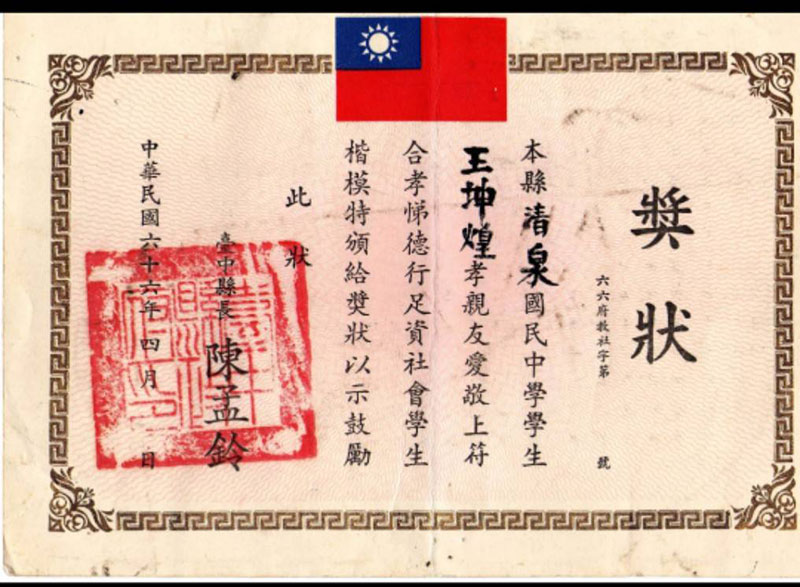 獎狀
六六府教社字第　　號
本縣清泉國民中學學生
王坤煌孝親友愛敬上符
合孝悌德行足資社會學生
楷模特頒給獎狀以示鼓勵
此狀
臺中縣長 陳孟鈴
中華民國六十六年四月　日